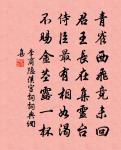 青雀西飛竟未回
君王長在集靈臺
侍臣最有相如渴
不賜金莖露一杯
李商隱漢宮詞詞典網